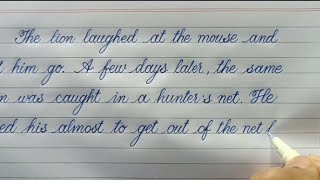 The lion laughed at the mouse and
him go. A few days later, the same
was caught in a hunter's net. He
his almost to get out of the net